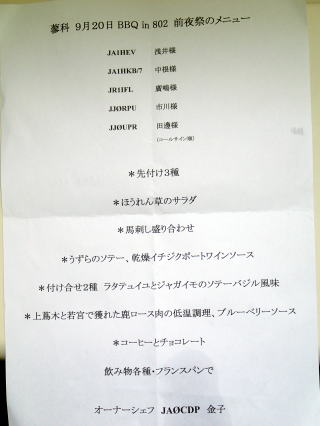 蓼科 9月20日 BBQ in 802 前夜祭のメニュー
JA1HEV 浅井様
JA1HKB/7 中根様
JR1IFL 廣嶋様
JJ0RPU 市川様
JJ0UPR 田邊様
(コールサイン順)
*先付け3種
*ほうれん草のサラダ
*馬刺し盛り合わせ
*うずらのソテー、乾燥イチジクポートワインソース
*付け合せ2種 ラタテュイユとジャガイモのソテーバジル風味
*上蔦木と若宮で獲れた鹿ロース肉の低温調理、ブルーベリーソース
*コーヒーとチョコレート
飲み物各種・フランスパンで
オーナーシェフ JAØCDP 金子